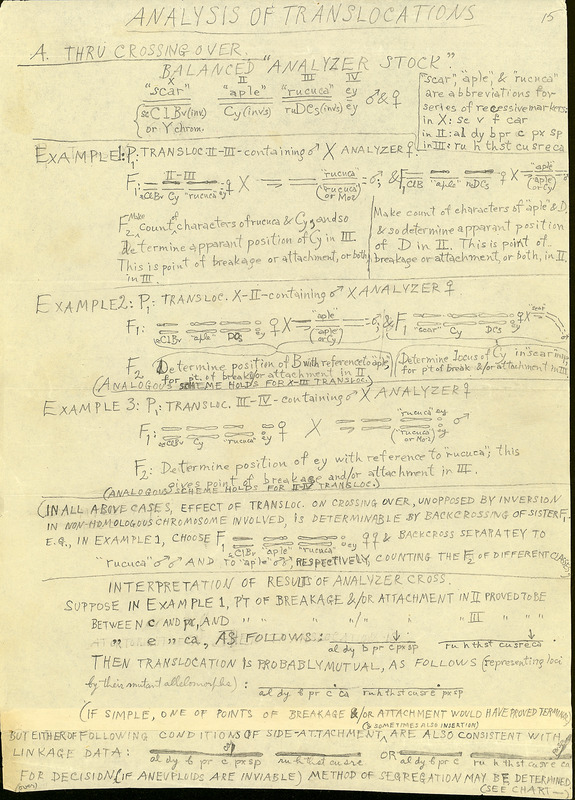 ANALYSIS OF TRANSLOCATIONS
15
A. THRU CROSSING OVER.
BALANCED "ANALYZER STOCK":
X II III IV
"scar" "aple" "rucuca" ey
scClBv(inv) Cy(invs) ruDCs(invs) ey ♂&♀
or Y chrom.
"scar", "aple", & "rucuca"
are abbreviations for
series of recessive markers:
in X: sc v f car
in II: al dy bpr c px sp
in III: ru h th st cu sr e ca
EXAMPLE 1: P1: TRANSLOC II-III-containing ♂ X ANALYZER ♀
F1: II-III
scClBv Cy "rucuca" ey ♀ X "rucuca" (rucuca or Mo2) ♂; & F1 ClB "aple" ruDCs X "aple" (aple or Cy)
F2 Make count of characters of rucuca & Cy, and so
determine apparant position of Cy in III.
This is point of breakage or attachment, or both,
in III.
Make count of characters of "aple" & D,
& so determine apparant position
of D in II. This is point of
breakage or attachment, or both, in II.
EXAMPLE 2: P1: TRANSLOC. X-II-containing ♂ X ANALYZER ♀
F1: scClBv "aple" DCs ey ♀ X "aple" (aple or Cy) ♂; & F1 "scar" Cy DCs ey ♀ X "scar"
F2 Determine position of B with reference to "aple",
for pt. of break &/or attachment in II
Determine locus of Cy in "scar" map,
for pt of break &/or attachment in
(ANALOGOUS SCHEME HOLDS FOR X-III TRANSLOC.)
EXAMPLE 3: P1: TRANSLOC. III-IV-containing ♂ X ANALYZER ♀
F1: scClBv Cy "rucuca" ey ♀ X "rucuca" (rucuca or Mo2) ey ♂
F2: Determine position of ey with reference to "rucuca"; this
gives point of breakage and/or attachment in III.
(ANALOGOUS SCHEME HOLDS FOR II-IV TRANSLOC.)
(IN ALL ABOVE CASES, EFFECT OF TRANSLOC. ON CROSSING OVER, UNOPPOSED BY INVERSION
IN NON-HOMOLOGOUS CHROMOSOME INVOLVED, IS DETERMINABLE BY BACKCROSSING OF SISTER F1
E.G., IN EXAMPLE 1, CHOOSE F1 scClBv "aple" "rucuca" ey ♀♀ & BACKCROSS SEPARATEY TO
"rucuca" ♂♂ AND TO "aple" ♂♂, RESPECTIVELY, COUNTING THE F2 OF DIFFERENT CLASSES)
INTERPRETATION OF RESULTS OF ANALYZER CROSS.
SUPPOSE IN EXAMPLE 1, PT OF BREAKAGE &/OR ATTACHMENT IN II PROVED TO BE
BETWEEN c AND px, AND " " " " "/" " " III " "
" e " ca, AS FOLLOWS: al dy b pr c px sp ru h th st cu sr e ca
THEN TRANSLOCATION IS PROBABLY MUTUAL, AS FOLLOWS (representing loci
by their mutant allelomorphs): al dy b pr c ca ru h th st cu sr e px sp
(IF SIMPLE, ONE OF POINTS OF BREAKAGE &/OR ATTACHMENT WOULD HAVE PROVED TERMINAL)
(& SOMETIMES ALSO INSERTION)
BUT EITHER OF FOLLOWING CONDITIONS OF SIDE-ATTACHMENT ARE ALSO CONSISTENT WITH
LINKAGE DATA: al dy b pr c px sp ru h th st cu sr e OR al dy b pr c ru h th st cu sr e ca
FOR DECISION (IF ANEUPLOIDS ARE INVIABLE) METHOD OF SEGREGATION MAY BE DETERMINED
(over) (SEE CHART —)